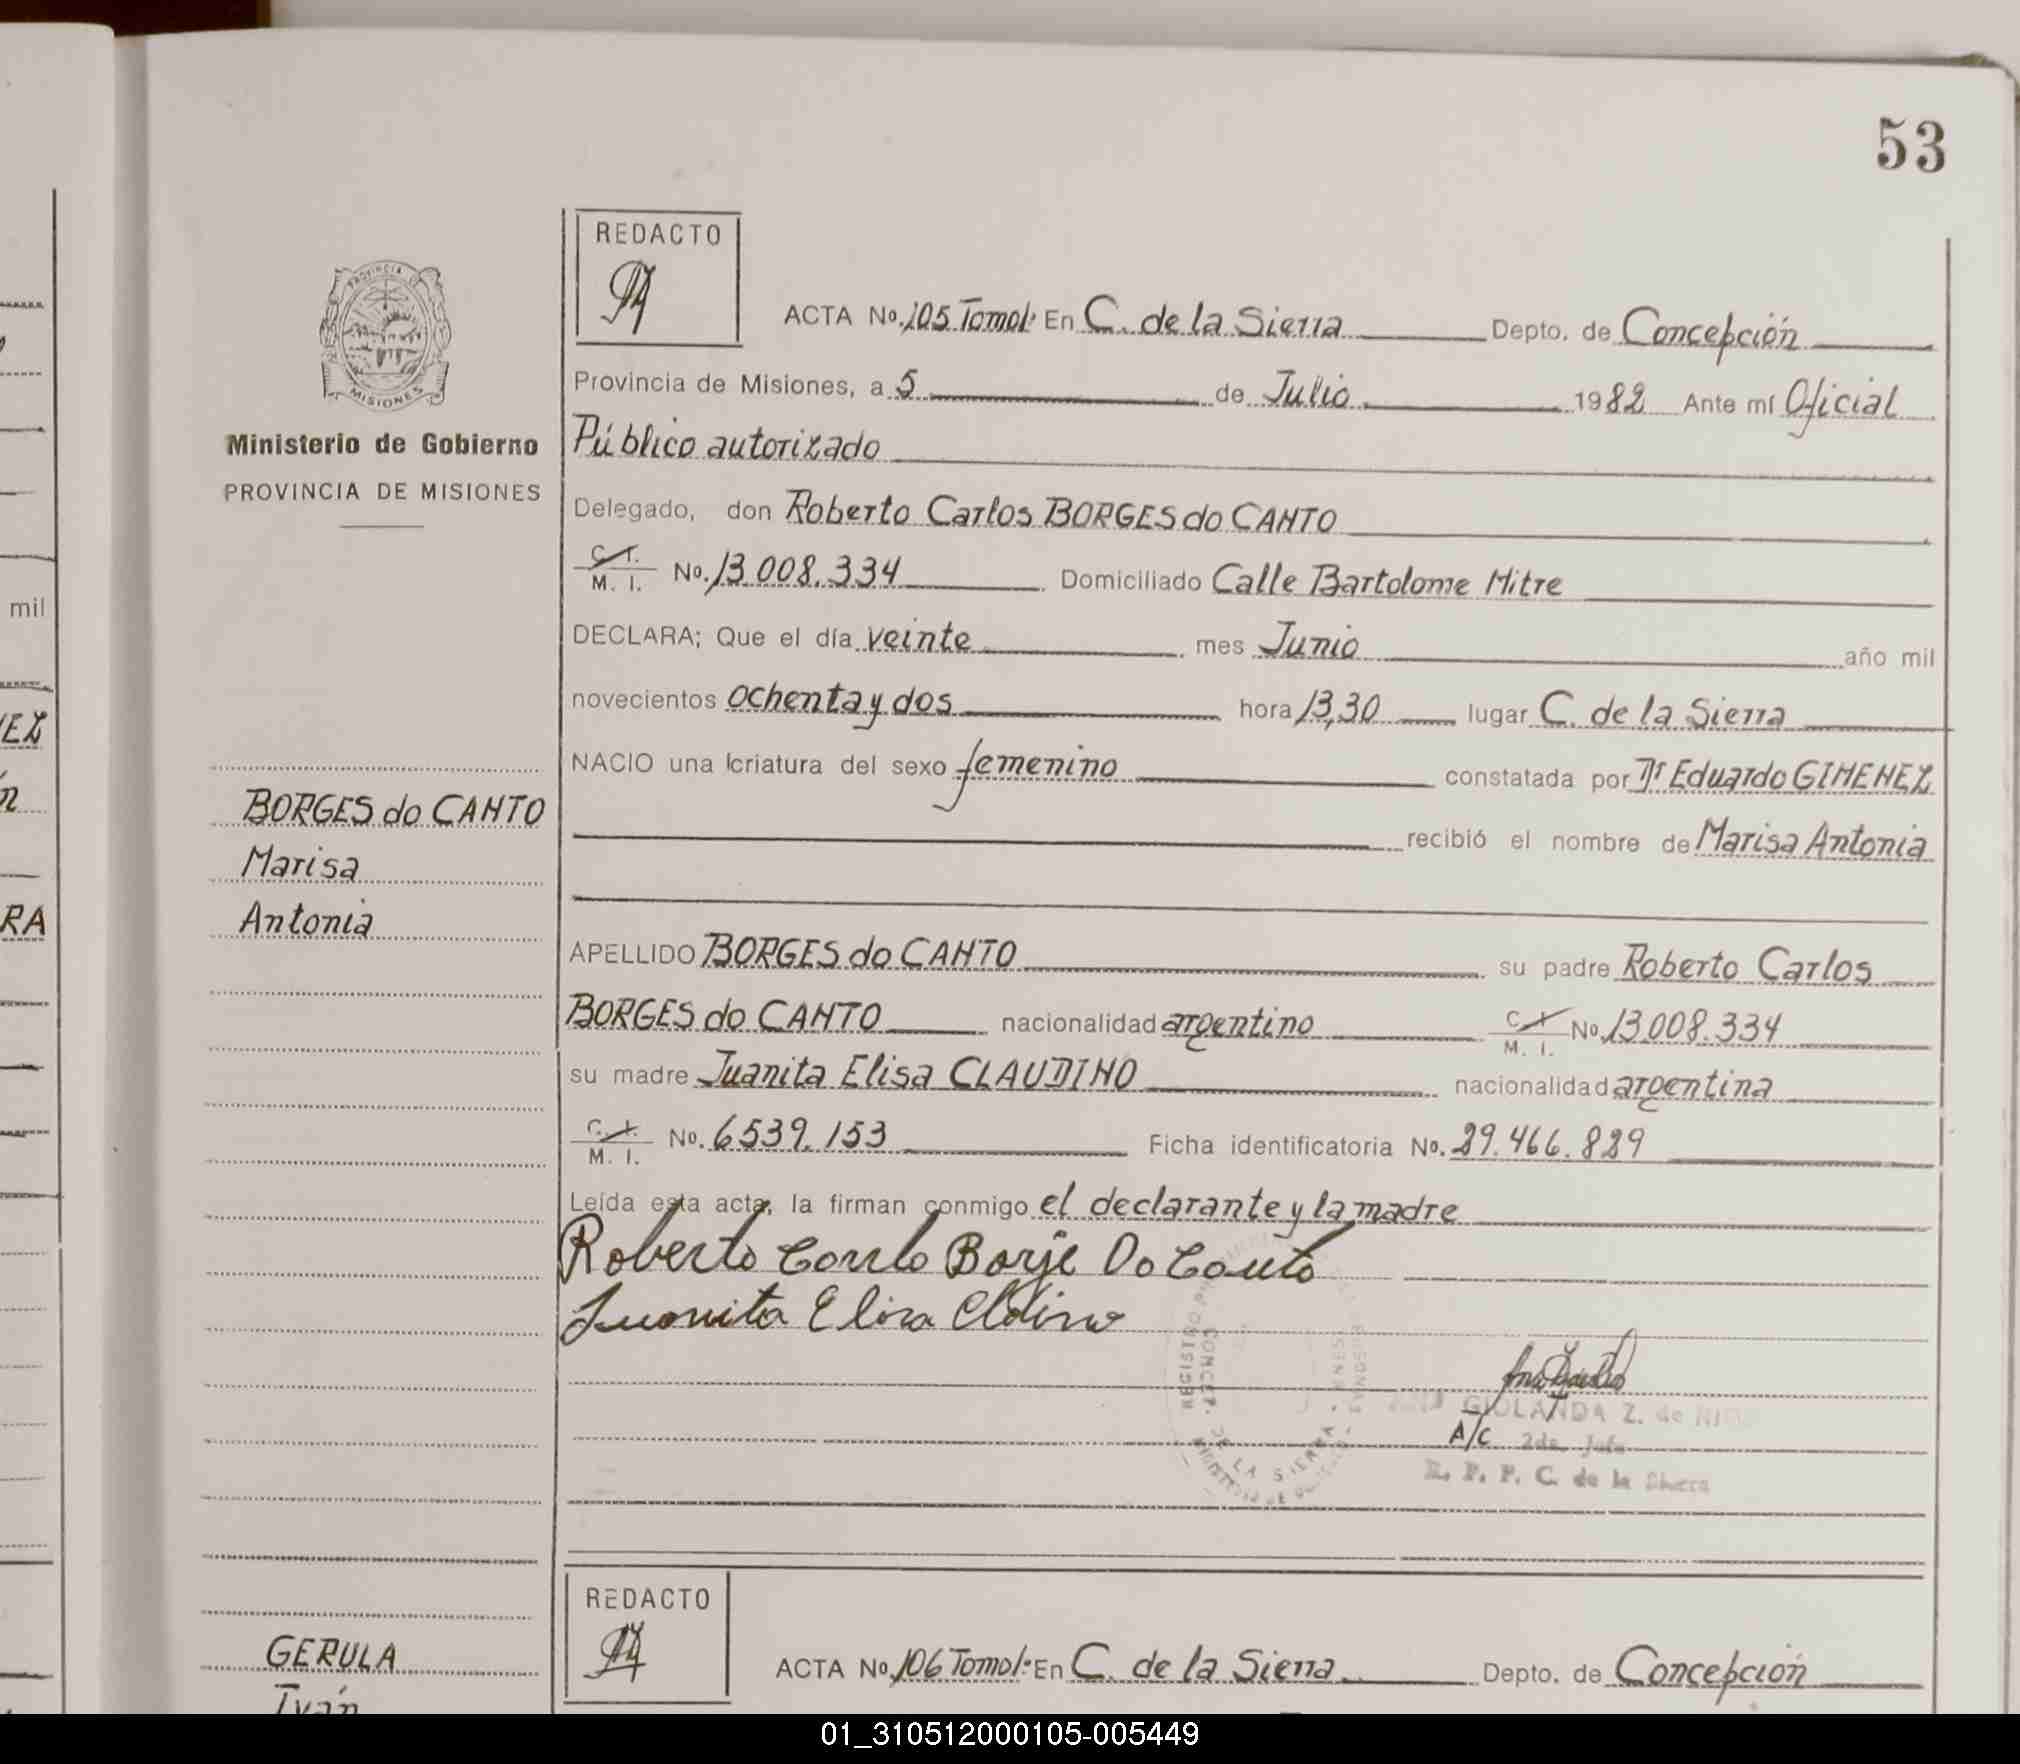 53
REDACTO
ACTA No. 105 Tomo I: En C. de la Sierra Depto. de Concepción
Provincia de Misiones, a 5 de Julio 1982 Ante mí Oficial
Público autorizado
Delegado, don Roberto Carlos BORGES do CANTO
C. I. M. I. No. 13.008.334 Domiciliado Calle Bartolome Mitre
DECLARA; Que el día veinte mes Junio año mil
novecientos ochenta y dos hora 13,30 lugar C. de la Sierra
NACIO una criatura del sexo femenino constatada por Dr Eduardo GIMENEZ
recibió el nombre de Marisa Antonia
APELLIDO BORGES do CANTO su padre Roberto Carlos
BORGES do CANTO nacionalidad argentino C. I. M. I. No. 13.008.334
su madre Juanita Elisa CLAUDINO nacionalidad argentina
C. I. M. I. No. 6539.153 Ficha identificatoria No. 29.466.829
Leída esta acta, la firman conmigo el declarante y la madre
Roberto Carlo Borje Do Canto
Juanita Elisa Cldino
GIOLANDA Z. de
A/C 2da. Jefe
R. P. P. C. de la Sierra
PROVINCIA DE
MISIONES
Ministerio de Gobierno
PROVINCIA DE MISIONES
BORGES do CANTO
Marisa
Antonia
REDACTO
ACTA No. 106 Tomo I: En C. de la Sierra Depto. de Concepción
GERULA
Iván
mil
RA
01_310512000105-005449